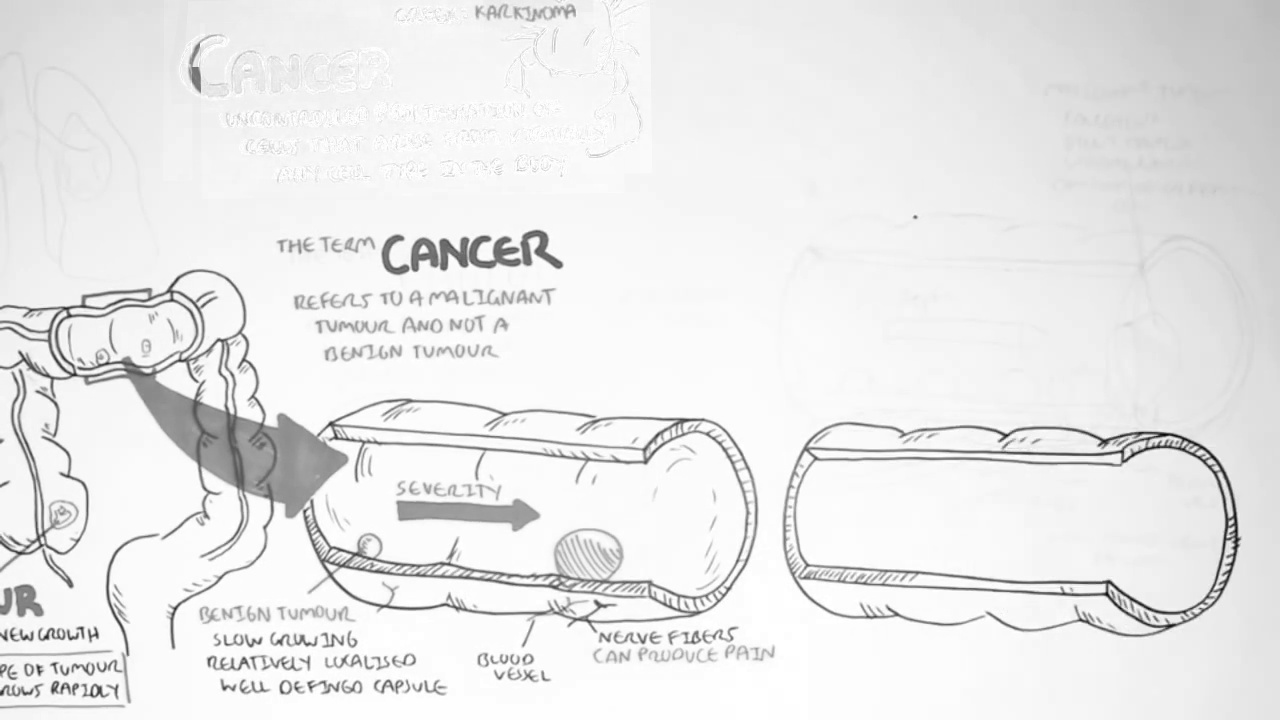 GREEK: KARKINOMA
CANCER
UNCONTROLLED PROLIFERATION OF
CELLS THAT
ANY CELL TYPE IN THE BODY
THE TERM CANCER
REFERS TO A MALIGNANT
TUMOUR AND NOT A
BENIGN TUMOUR
SEVERITY
UR
NEW GROWTH
PE OF TUMOUR
ROWS RAPIDLY
BENIGN TUMOUR
SLOW GROWING
RELATIVELY LOCALISED
WELL DEFINED CAPSULE
BLOOD
VESSEL
NERVE FIBERS
CAN PRODUCE PAIN